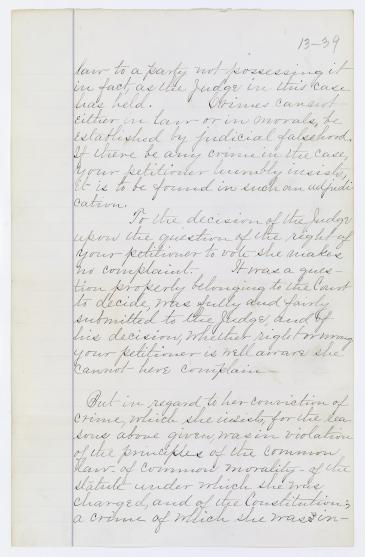 13-39
law to a party not possessing it
in fact, as the Judge in this case
has held. Crimes cannot
either in law or in morals, be
established by judicial falsehood.
If there be any crime in the case,
your petitioner humbly insists,
it is to be found in such an adjudi-
cation.
To the decision of the Judge
upon the question of the right of
your petitioner to vote she makes
no complaint. It was a ques-
tion properly belonging to the Court
to decide, was fully and fairly
submitted to the Judge, and of
his decision, whether right or wrong
your petitioner is well aware she
cannot here complain -
But in regard to her conviction of
crime, which she insists, for the rea-
sons above given, was in violation
of the principles of the common
law - of common morality - of the
statute under which she was
charged, and of the Constitution;
a crime of which she was in-